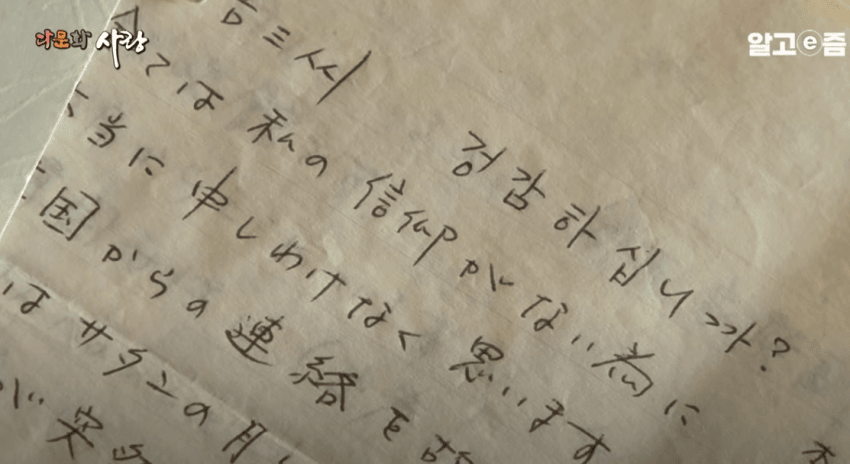 다문화 사랑
알고e즘
三씨 겅감하십니까?
ては私の信仰がない為に
当に申しわけなく思います
国からの連絡を
はサタンの
が突